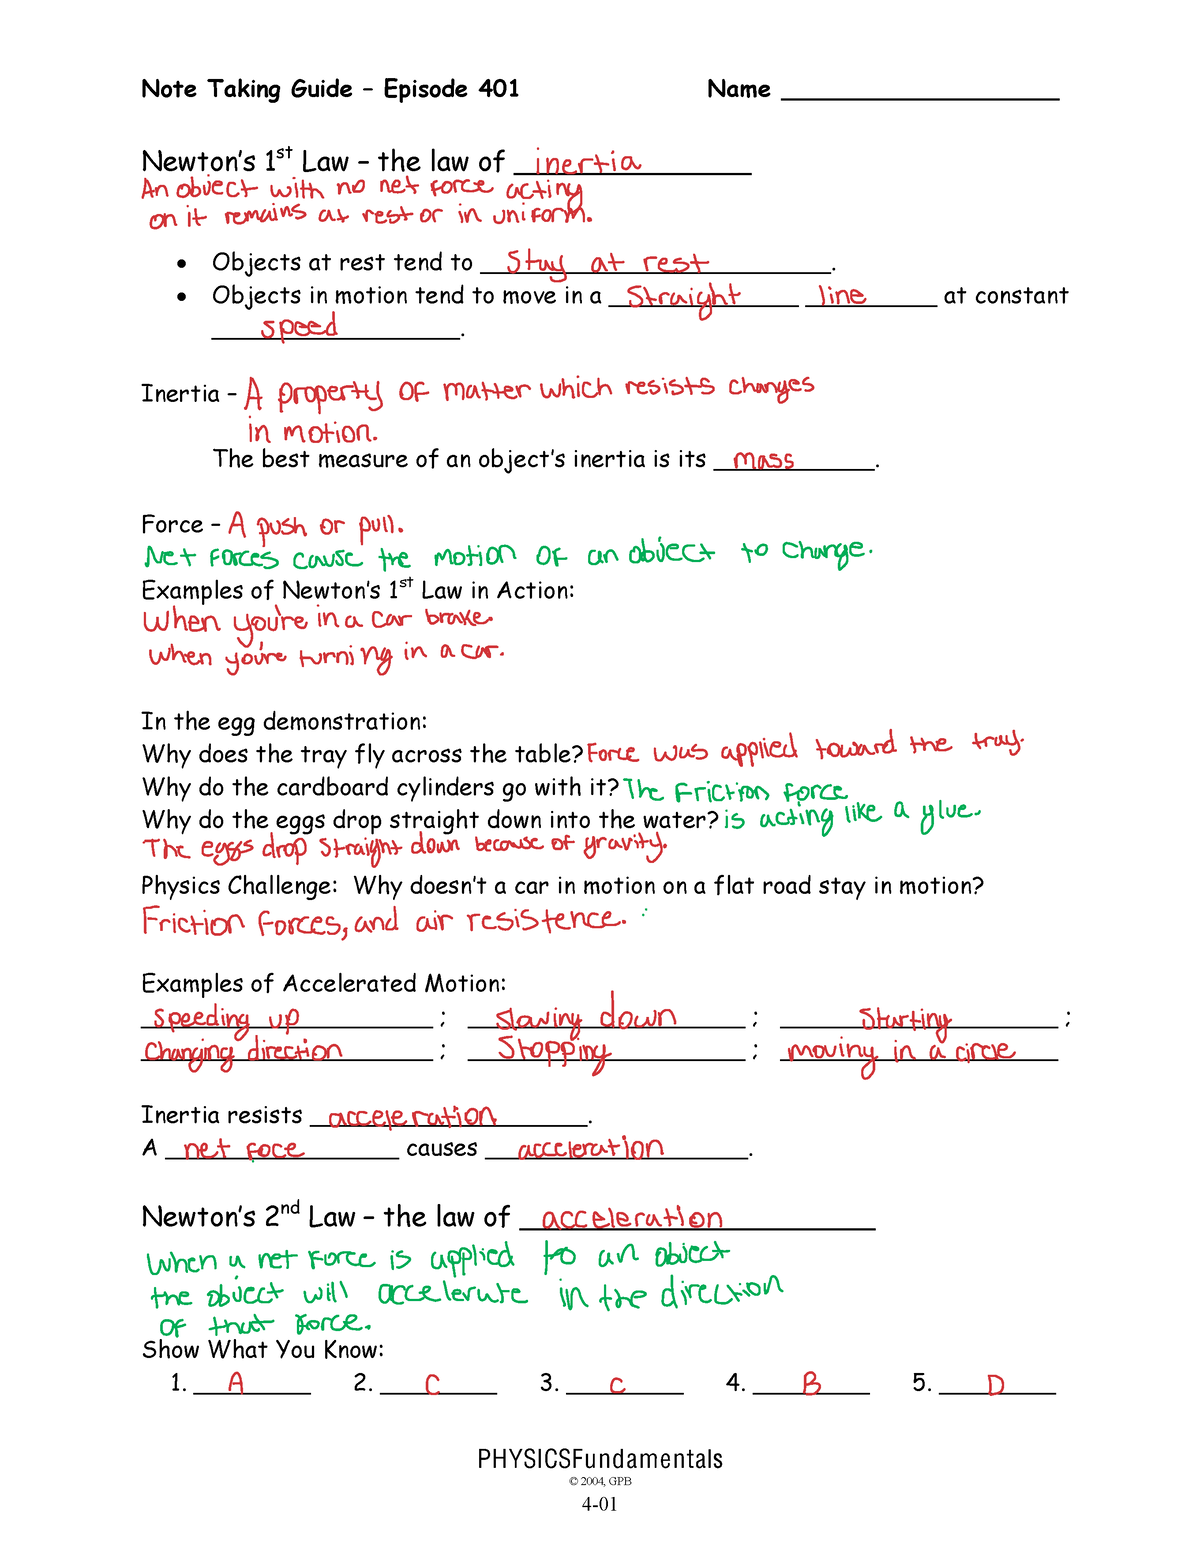 Note Taking Guide – Episode 401 Name ____________________
Newton's 1st Law – the law of inertia
An object with no net force acting
on it remains at rest or in uniform.
• Objects at rest tend to stay at rest.
• Objects in motion tend to move in a straight line at constant
speed.
Inertia – A property of matter which resists changes
in motion.
The best measure of an object's inertia is its mass.
Force – A push or pull.
Net forces cause the motion of an object to change.
Examples of Newton's 1st Law in Action:
When you're in a car brake.
when you're turning in a car.
In the egg demonstration:
Why does the tray fly across the table? Force was applied toward the tray.
Why do the cardboard cylinders go with it? The Friction force
Why do the eggs drop straight down into the water? is acting like a glue.
The eggs drop straight down because of gravity.
Physics Challenge: Why doesn't a car in motion on a flat road stay in motion?
Friction forces, and air resistence.
Examples of Accelerated Motion:
speeding up ; slowing down ; Starting ;
Changing direction ; Stopping ; moving in a circle
Inertia resists acceleration.
A net foce causes acceleration.
Newton's 2nd Law – the law of acceleration
When a net force is applied to an object
the object will accelerate in the direction
of that force.
Show What You Know:
1. A 2. C 3. C 4. B 5. D
PHYSICSFundamentals
© 2004, GPB
4-01